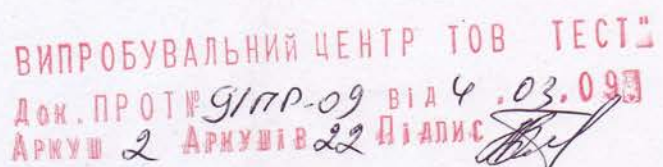 ВИПРОБУВАЛЬНИЙ ЦЕНТР ТОВ ТЕСТ"
Док. ПРОТ № 91/ПР-09 від 4 .03.09
Аркуш 2 Аркушів 22 Підпис